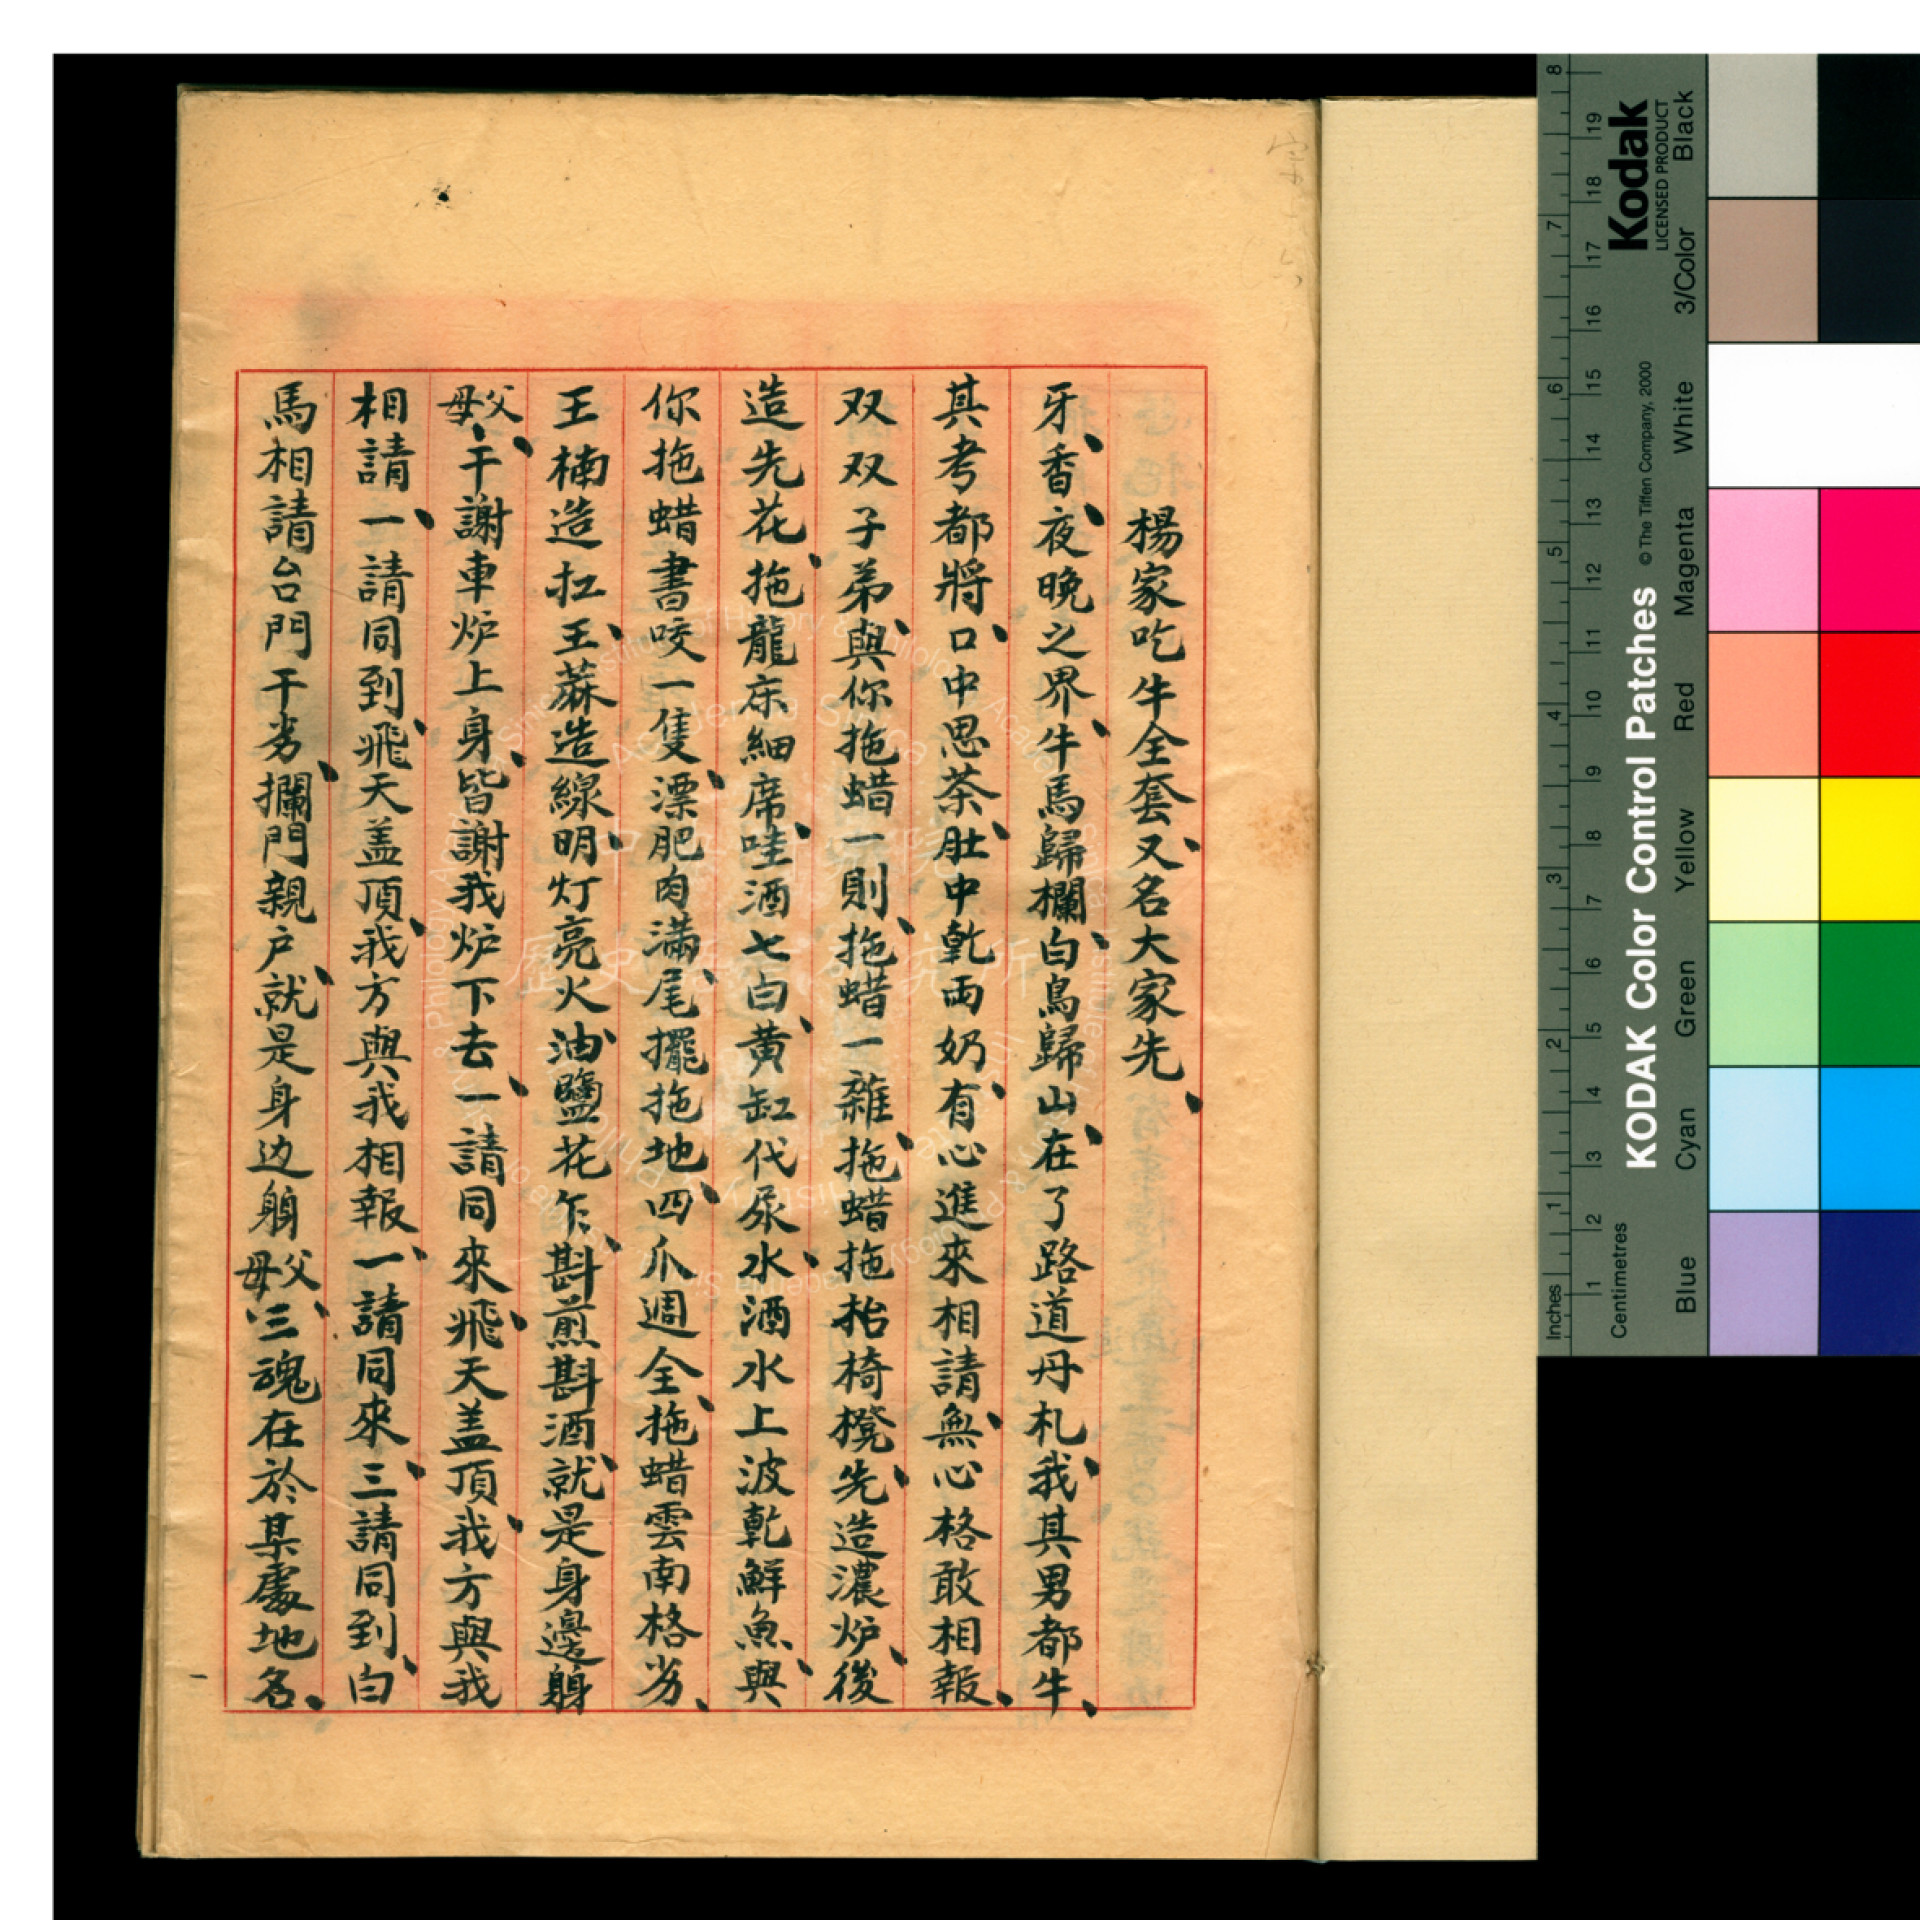 楊家吃牛全套、又名大家先、
牙、香、夜晚之界、牛馬歸欄、白鳥歸山、在了路道丹札、我其男都牛、
其考都將、口中思茶、肚中乾両奶、有心進來相請、無心格敢相報、
双双子弟、與你拖蜡一則、拖蜡一雜、拖蜡拖枱椅櫈、先造濃炉、後
造先花、拖龍床細席、哇酒七白、黄缸代尿水、酒水上波乾鮮魚、與
你拖蜡書咬一隻、漂肥肉滿、尾擺拖地、四爪週全、拖蜡雲南格劣、
王楠造扛、王蔴造線、明灯亮火、油鹽花乍、斟煎斟酒、就是身邊躬
父母、干謝車炉上身、皆謝我炉下去、一請同來、飛天盖頂、我方與我
相請、一請同到、飛天盖頂、我方與我相報、一請同來、三請同到、白
馬相請台門干劣、攔門親户、就是身边躬父母、三魂在於某處地名、
宗
Kodak
LICENSED PRODUCT
KODAK Color Control Patches
© The Tiffen Company, 2000
Black
3/Color
White
Magenta
Red
Yellow
Green
Cyan
Blue
Inches
1 2 3 4 5 6 7 8
Centimetres
1 2 3 4 5 6 7 8 9 10 11 12 13 14 15 16 17 18 19